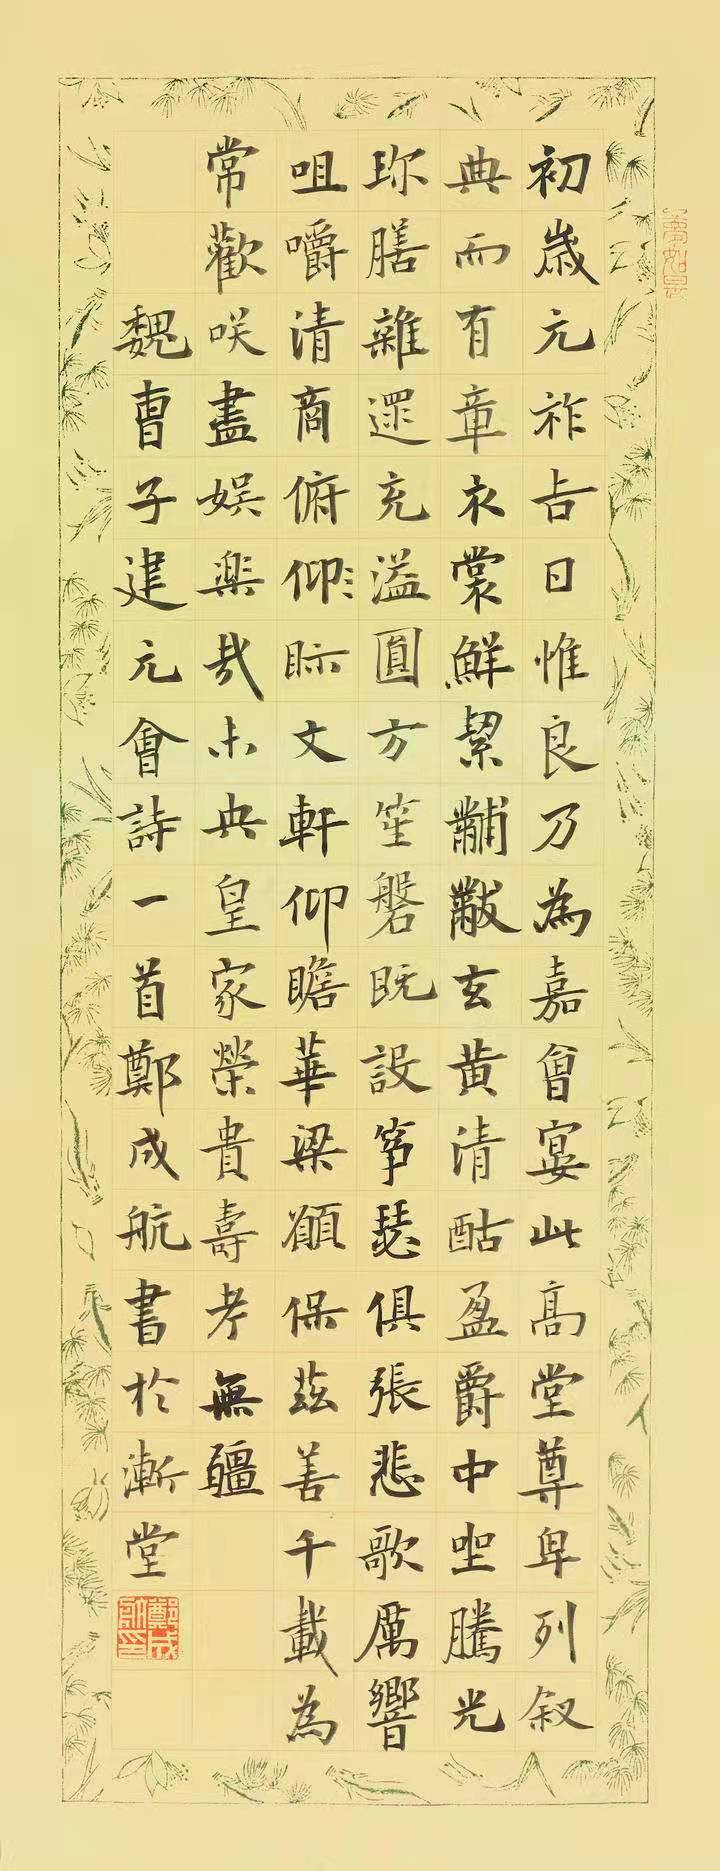 初歲元祚吉日惟良乃為嘉會宴此高堂尊卑列叙
典而有章衣裳鮮絜黼黻玄黃清酤盈爵中坐騰光
珎膳雜遝充溢圓方笙磐既設筝瑟俱張悲歌厲響
咀嚼清商俯仰眎文軒仰瞻華梁願保茲善千載為
常歡咲盡娛樂哉未央皇家榮貴壽考無疆
魏曹子建元會詩一首鄭成航書於漸堂
鄭成航印